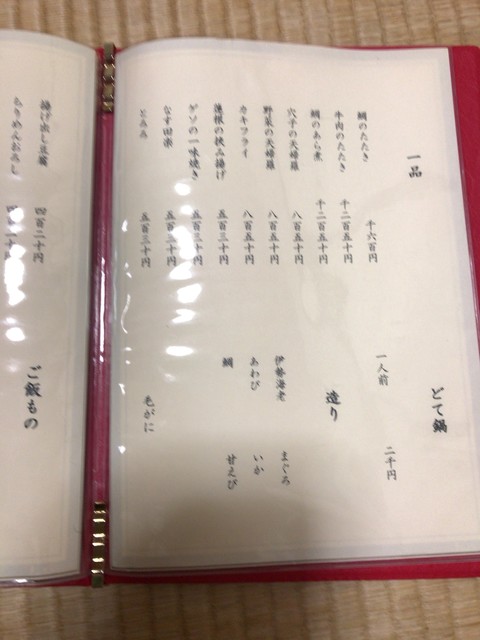 一品
鯛のたたき 千六百円
牛肉のたたき 千二百五十円
鯛のあら煮 千二百五十円
穴子の天婦羅 八百五十円
野菜の天婦羅 八百五十円
カキフライ 八百五十円
蓮根の挟み揚げ 五百三十円
ゲソの一味焼き 五百三十円
なす田楽 五百三十円
五百三十円
どて鍋
一人前 二千円
造り
伊勢海老 まぐろ
あわび いか
鯛 甘えび
毛がに
揚げ出し豆腐 四百二十円
ちりめんおろし 四百二十円
ご飯もの